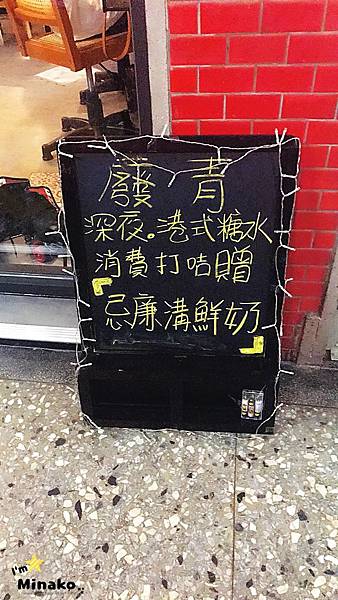 發青
深夜。港式糖水
消費打咭贈
忌廉溝鮮奶
I'm
Minako..